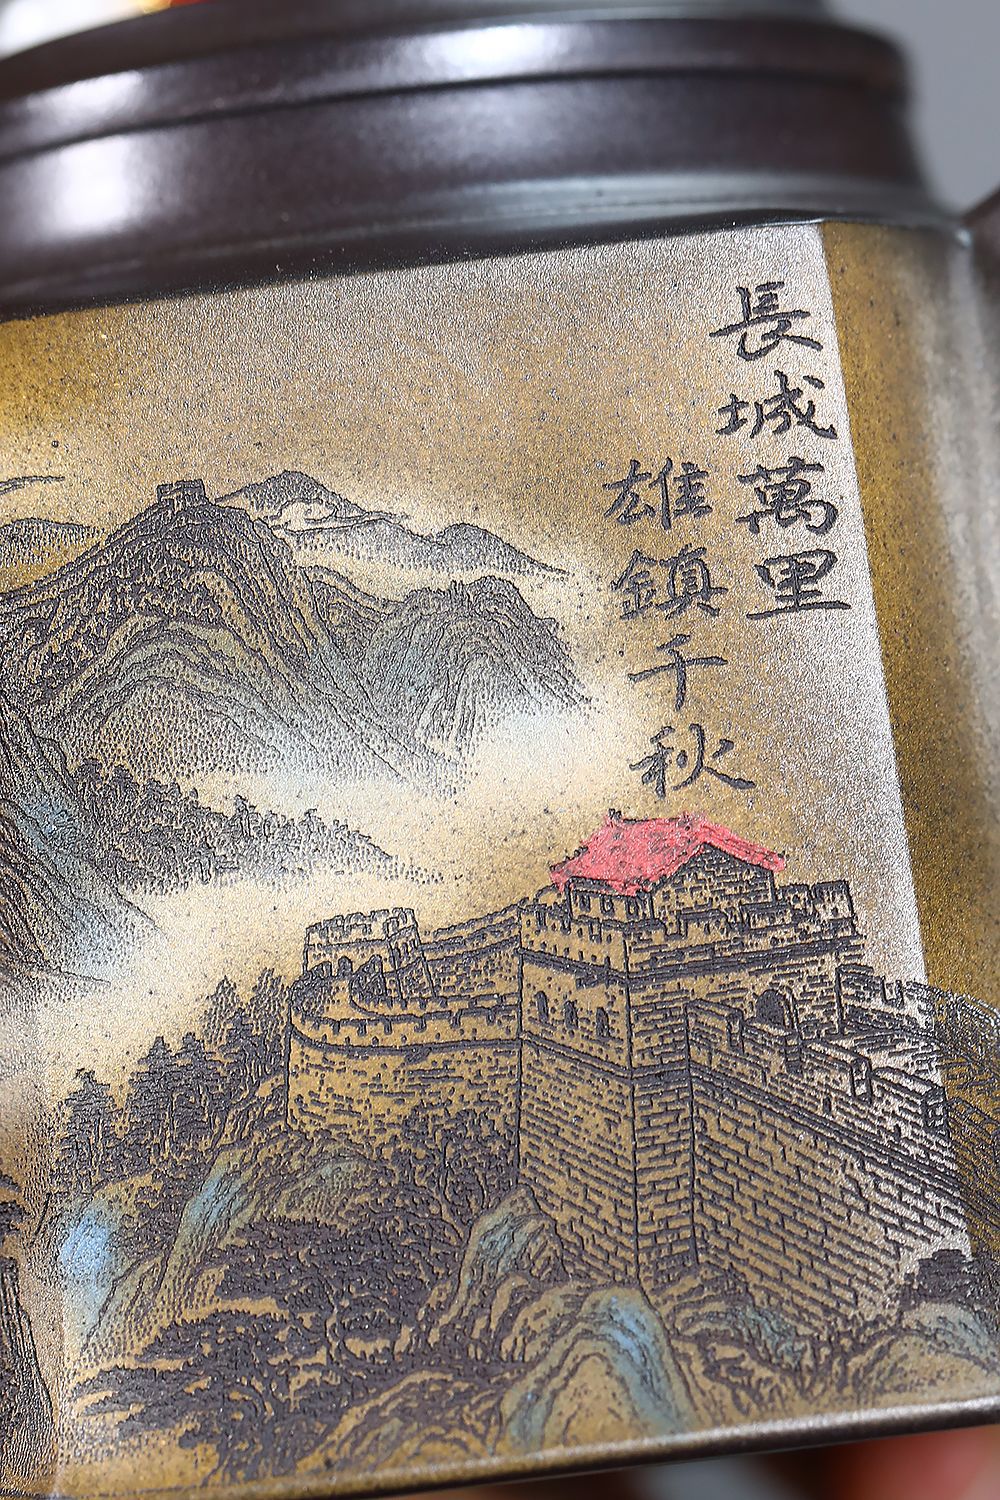 長城萬里
雄鎮千秋